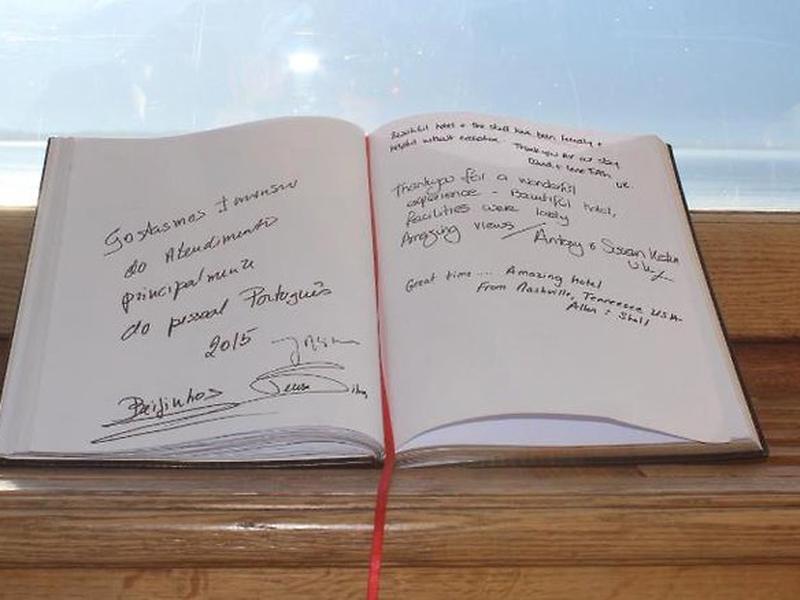 Gostasmos Imenso
do Atendimento
principalmente
do pessoal Português
2015
Beijinhos
Silva
Beautiful hotel + the staff have been friendly +
helpful without exception. Thank you for our stay
UK.
Thankyou for a wonderful
experience - Beautiful hotel,
facilities were lovely
Amazing views / Antony & Susan
UK
Great time.... Amazing hotel
From Nashville, Tennessee USA
Allen &